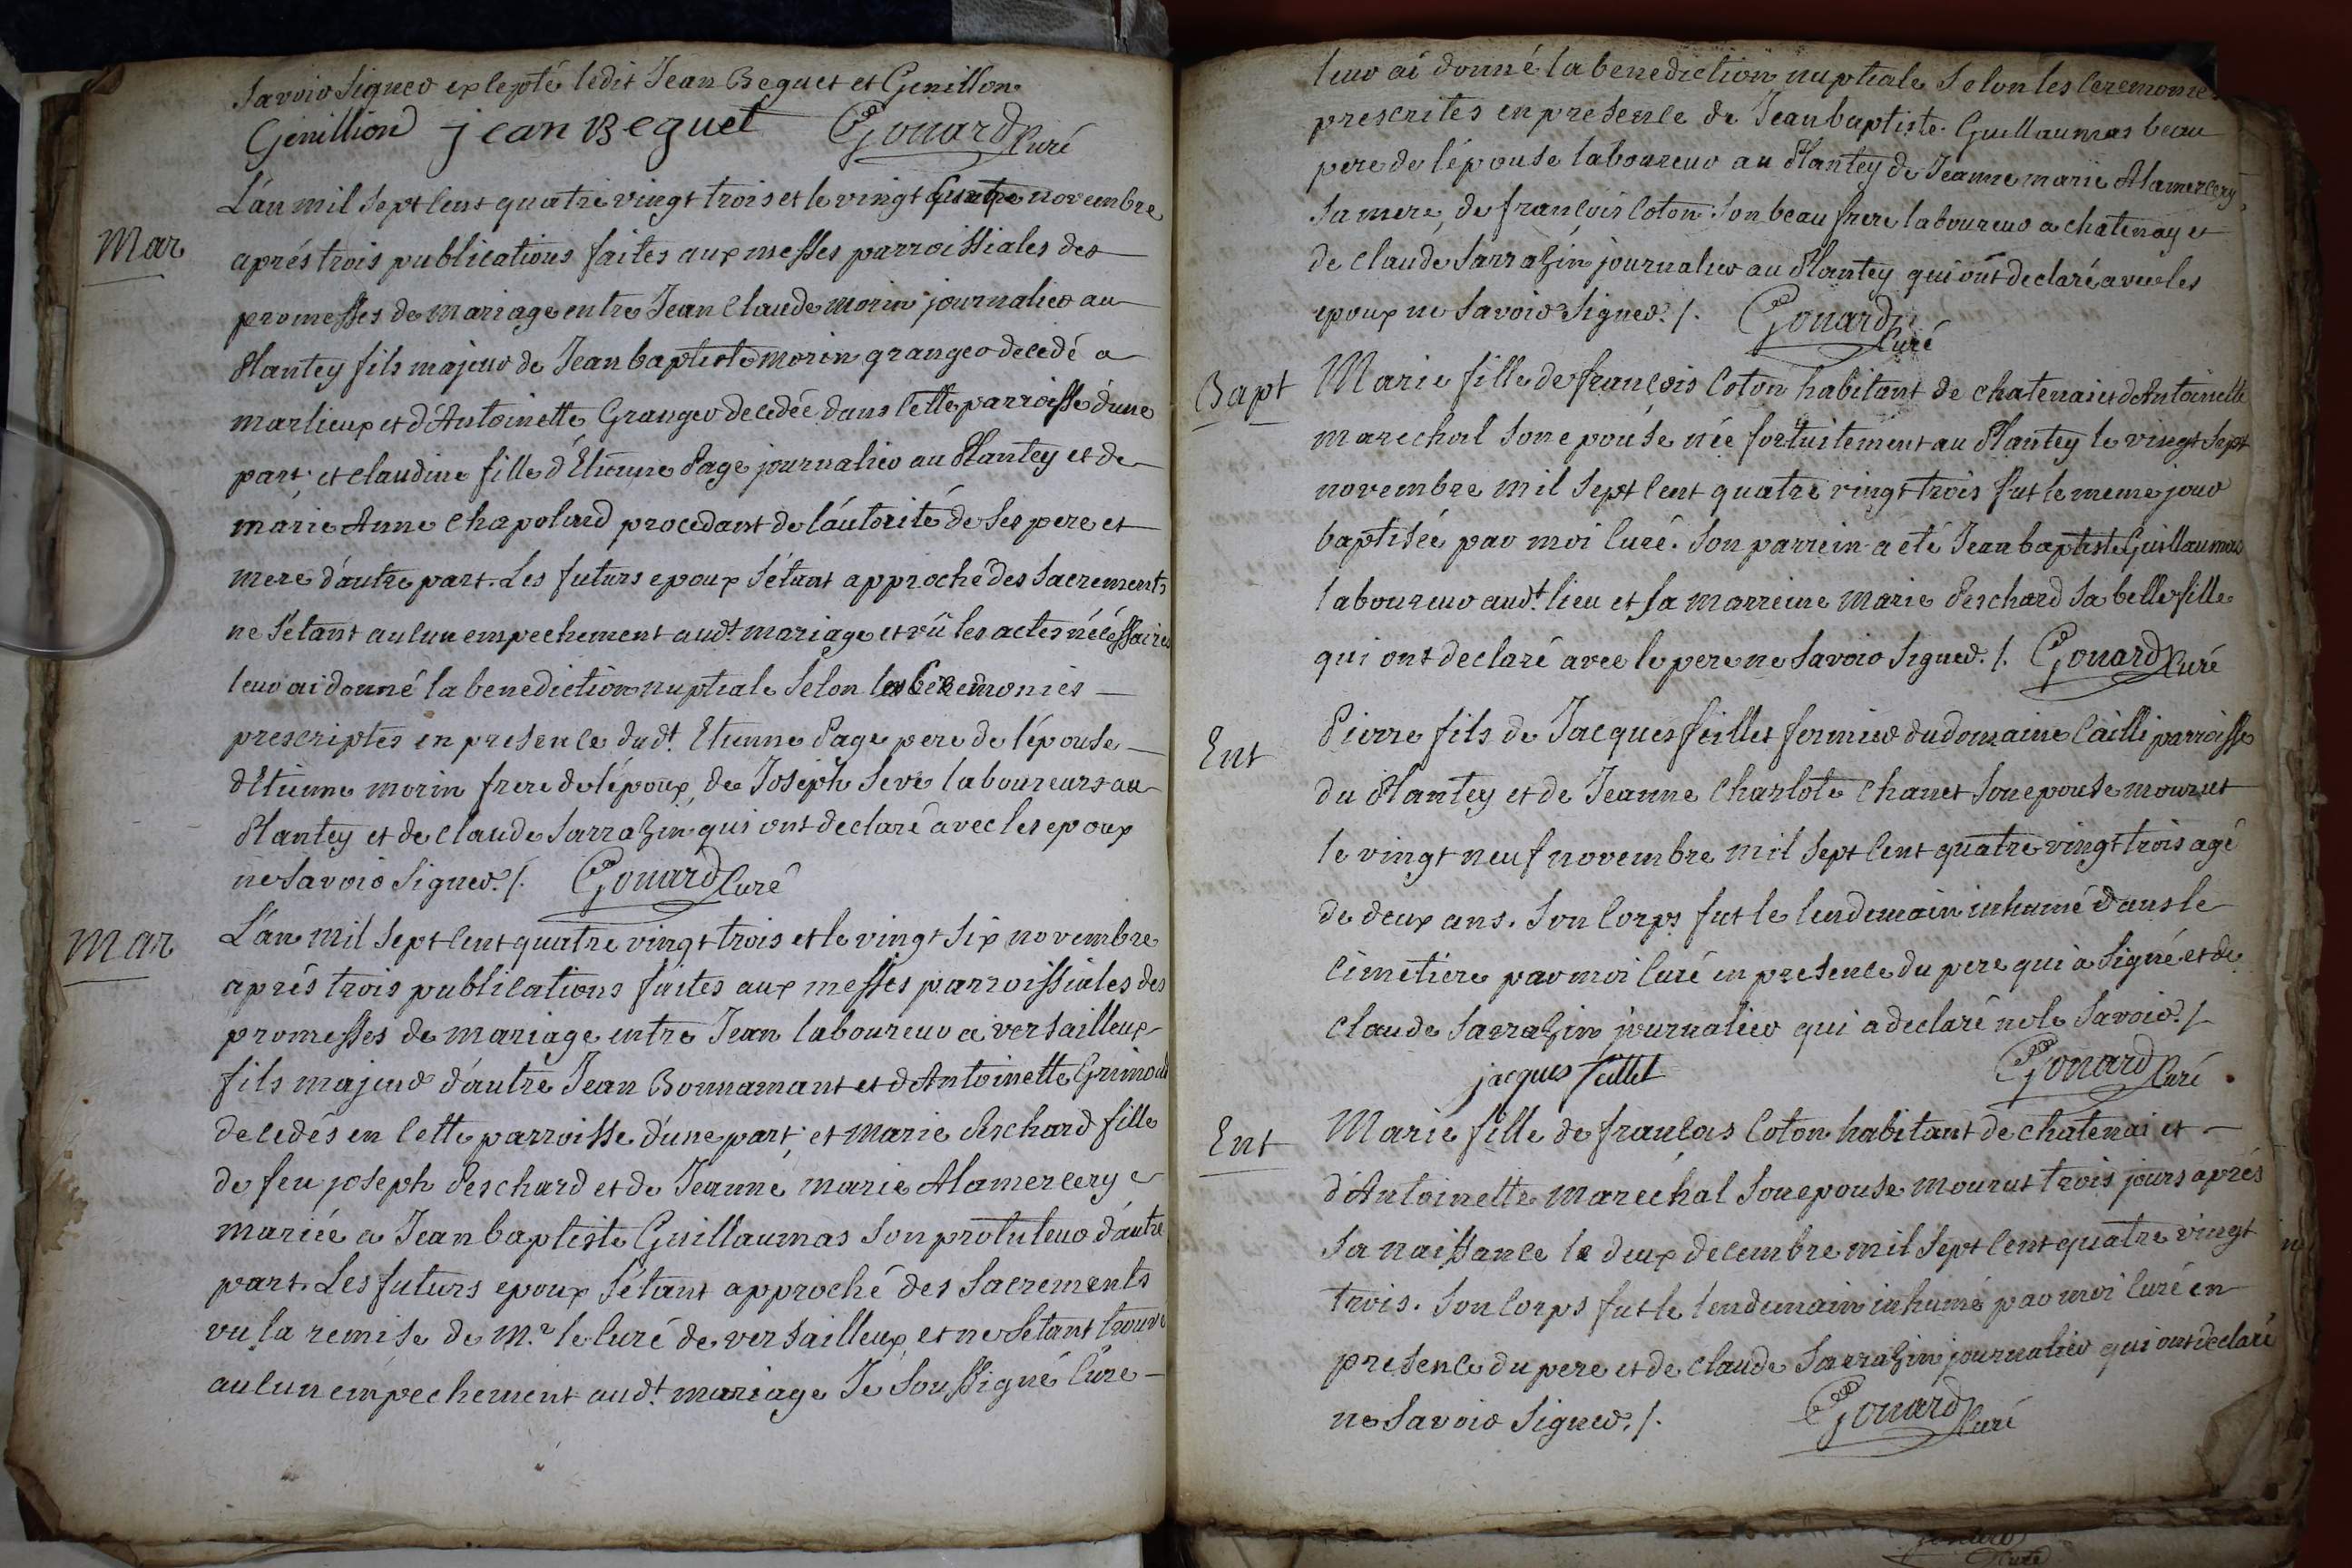 Savoir Signer excepté ledit Jean Beguet et Genillon
Genillion jean Beguet Gouard Curé
L'an mil Sept cent quatre vingt trois et le vingt quatre novembre
Mar
aprés trois publications faites aux messes parroissiales des
promesses de mariage entre Jean Claude morin journalier au
Plantey fils majeur de Jean baptiste morin granger decedé a
marlieux et d'Antoinette Granger decedée dans cette parroisse d'une
part; et claudine fille d'Etienne Page journalier au Plantey et de
marie Anne Chapolard procedant de l'autorité de Ses pere et
mere d'autre part. Les futurs epoux S'étant approché des Sacrements
ne S'etant aucun empechement audt mariage et vû les actes nécéssaires
leur ai donné la benediction nuptiale Selon les Ceremonies
prescriptes en presence dudt. Etienne Page pere de l'épouse
d'Etienne morin frere de l'époux, de Joseph Seve laboureurs au
Plantey et de claude Sarrazin qui ont declaré avec les epoux
ne Savoir Signer. /. Gouard Curé
Mar
L'an mil Sept cent quatre vingt trois et le vingt Six novembre
aprés trois publications faites aux messes parroissiales des
promesses de mariage entre Jean laboureur a versailleux
fils majeur d'autre Jean Bonnamant et d'Antoinette
decedés en cette parroisse d'une part; et marie Perchard fille
de feu joseph Perchard et de Jeanne marie Alamercery
mariée a Jean baptiste Guillaumas Son protuteur d'autre
part. Les futurs epoux S'étant approché des Sacrements
vu la remise de M.r le Curé de versailleux et ne S'etant trouvé
aucun empechement audt. mariage Je Soussigné Curé
leur ai donné la benediction nuptiale Selon les Ceremonies
prescrites en presence de Jean baptiste Guillaumas beau
pere de l'épouse laboureur au Plantey de Jeanne marie Alamercery
Sa mere, de françois Coton Son beau frere laboureur a chatenay et
de Claude Sarrazin journalier au Plantey qui ont declaré avec les
epoux ne Savoir Signer. /. Gouard
Curé
Bapt
Marie fille de françois Coton habitant de chatenai et d'Antoinette
marechal Son epouse née fortuitement au Plantey le vingt Sept
novembre mil Sept cent quatre vingt trois fut le meme jour
baptisée par moi Curé. Son parrein a eté Jean baptiste Guillaumas
laboureur audt. lieu et Sa marreine marie Perchard Sa belle fille
qui ont declaré avec le pere ne Savoir Signer. /. Gouard Curé
Ent
Pierre fils de Jacques feillet fermier du domaine Cailli parroisse
du Plantey et de Jeanne Charlote Chanet Son epouse mourut
le vingt neuf novembre mil Sept cent quatre vingt trois agé
de deux ans. Son Corps fut le lendemain inhumé dans le
Cimetiere par moi Curé en presence du pere qui a Signé et de
Claude Sarrazin journalier qui a declaré ne le Savoir. /.
jacques feillet Gouard Curé
Ent
Marie fille de françois Coton habitant de chatenai et
d'Antoinette marechal Son epouse mourut trois jours aprés
Sa naissance le deux decembre mil Sept cent quatre vingt
trois. Son Corps fut le lendemain inhumé par moi Curé en
presence du pere et de claude Sarrazin journalier qui ont declaré
ne Savoir Signer. /. Gouard Curé